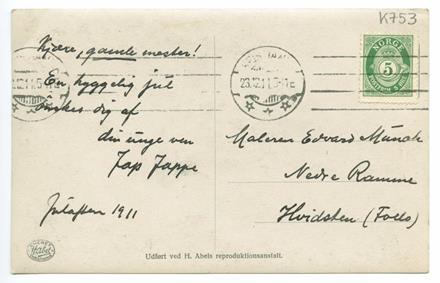 K753
Kjære, gamle mester!
En hyggelig jul
ønskes dig af
din unge ven
Jap Jappe
Julaften 1911
NORGE
5
23.12.11.5-
Maleren Edvard Munch
Nedre Ramme
Hvidsten (Follo)
Udført ved H. Abels reproduktionsanstalt.